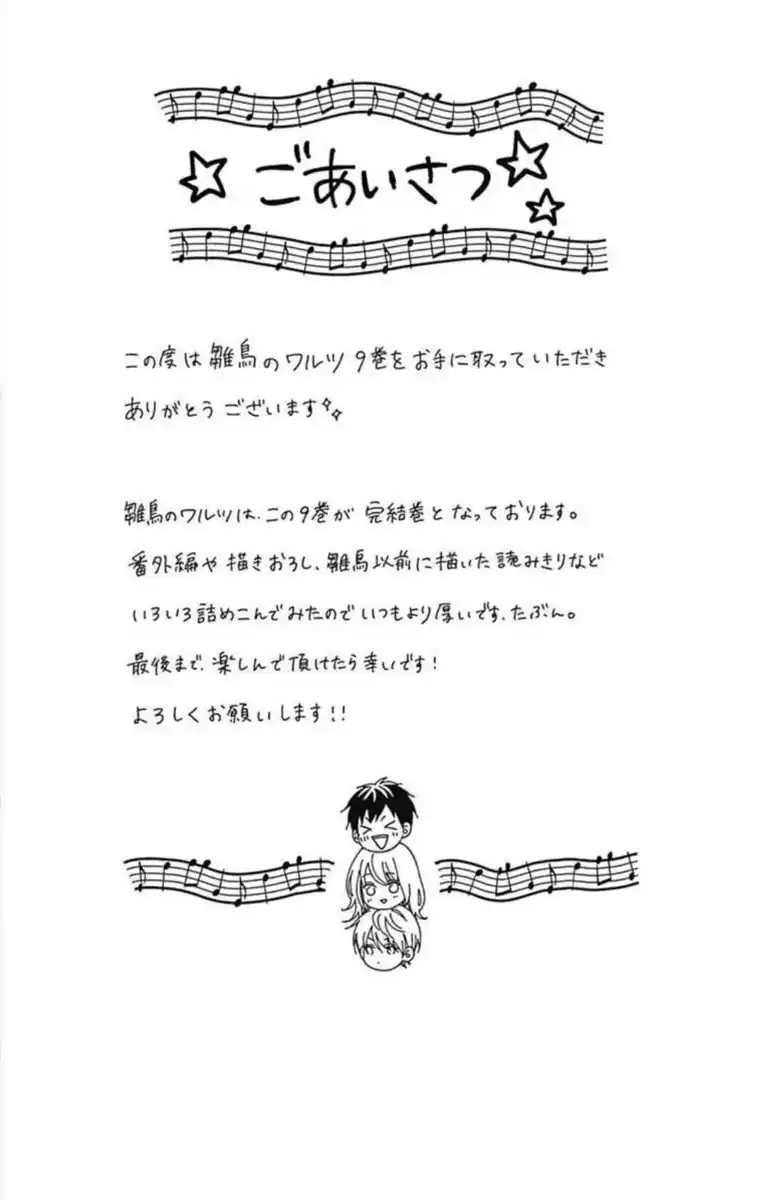 ごあいさつ
この度は雛鳥のワルツ 9巻をお手に取っていただき
ありがとうございます
雛鳥のワルツは、この9巻が完結巻となっております。
番外編や描きおろし、雛鳥以前に描いた読みきりなど
いろいろ詰めこんでみたのでいつもより厚いです、たぶん。
最後まで、楽しんで頂けたら幸いです!
よろしくお願いします!!